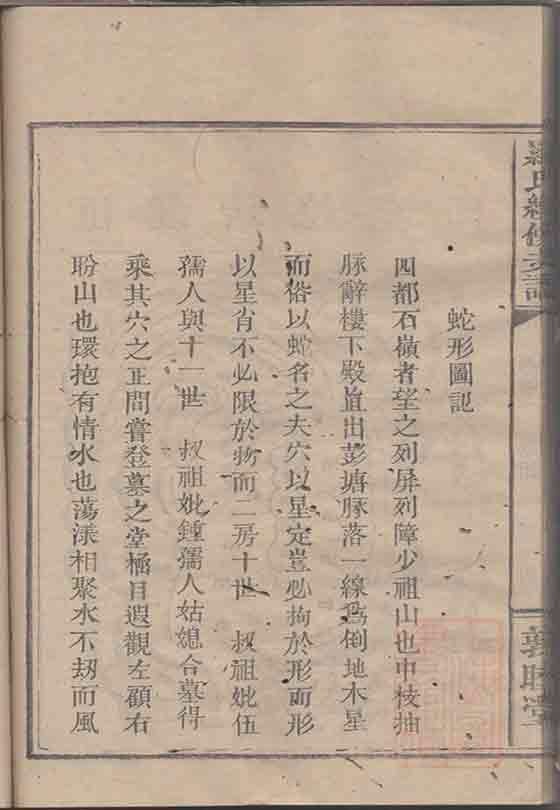 氏續修支譜
蛇形圖記
四都石嶺者望之列屏列障少祖山也中枝抽
脉辭樓下殿直出彭塘脉落一線爲倒地木星
而俗以蛇名之夫穴以星定豈必拘於形而形
以星省不必限於物而二房十世 叔祖妣伍
孺人與十一世 叔祖妣鍾孺人姑媳合墓得
乘其穴之正間嘗登墓之堂極目遐觀左顧右
盼山也環抱有情水也蕩漾相聚水不刼而風
堂